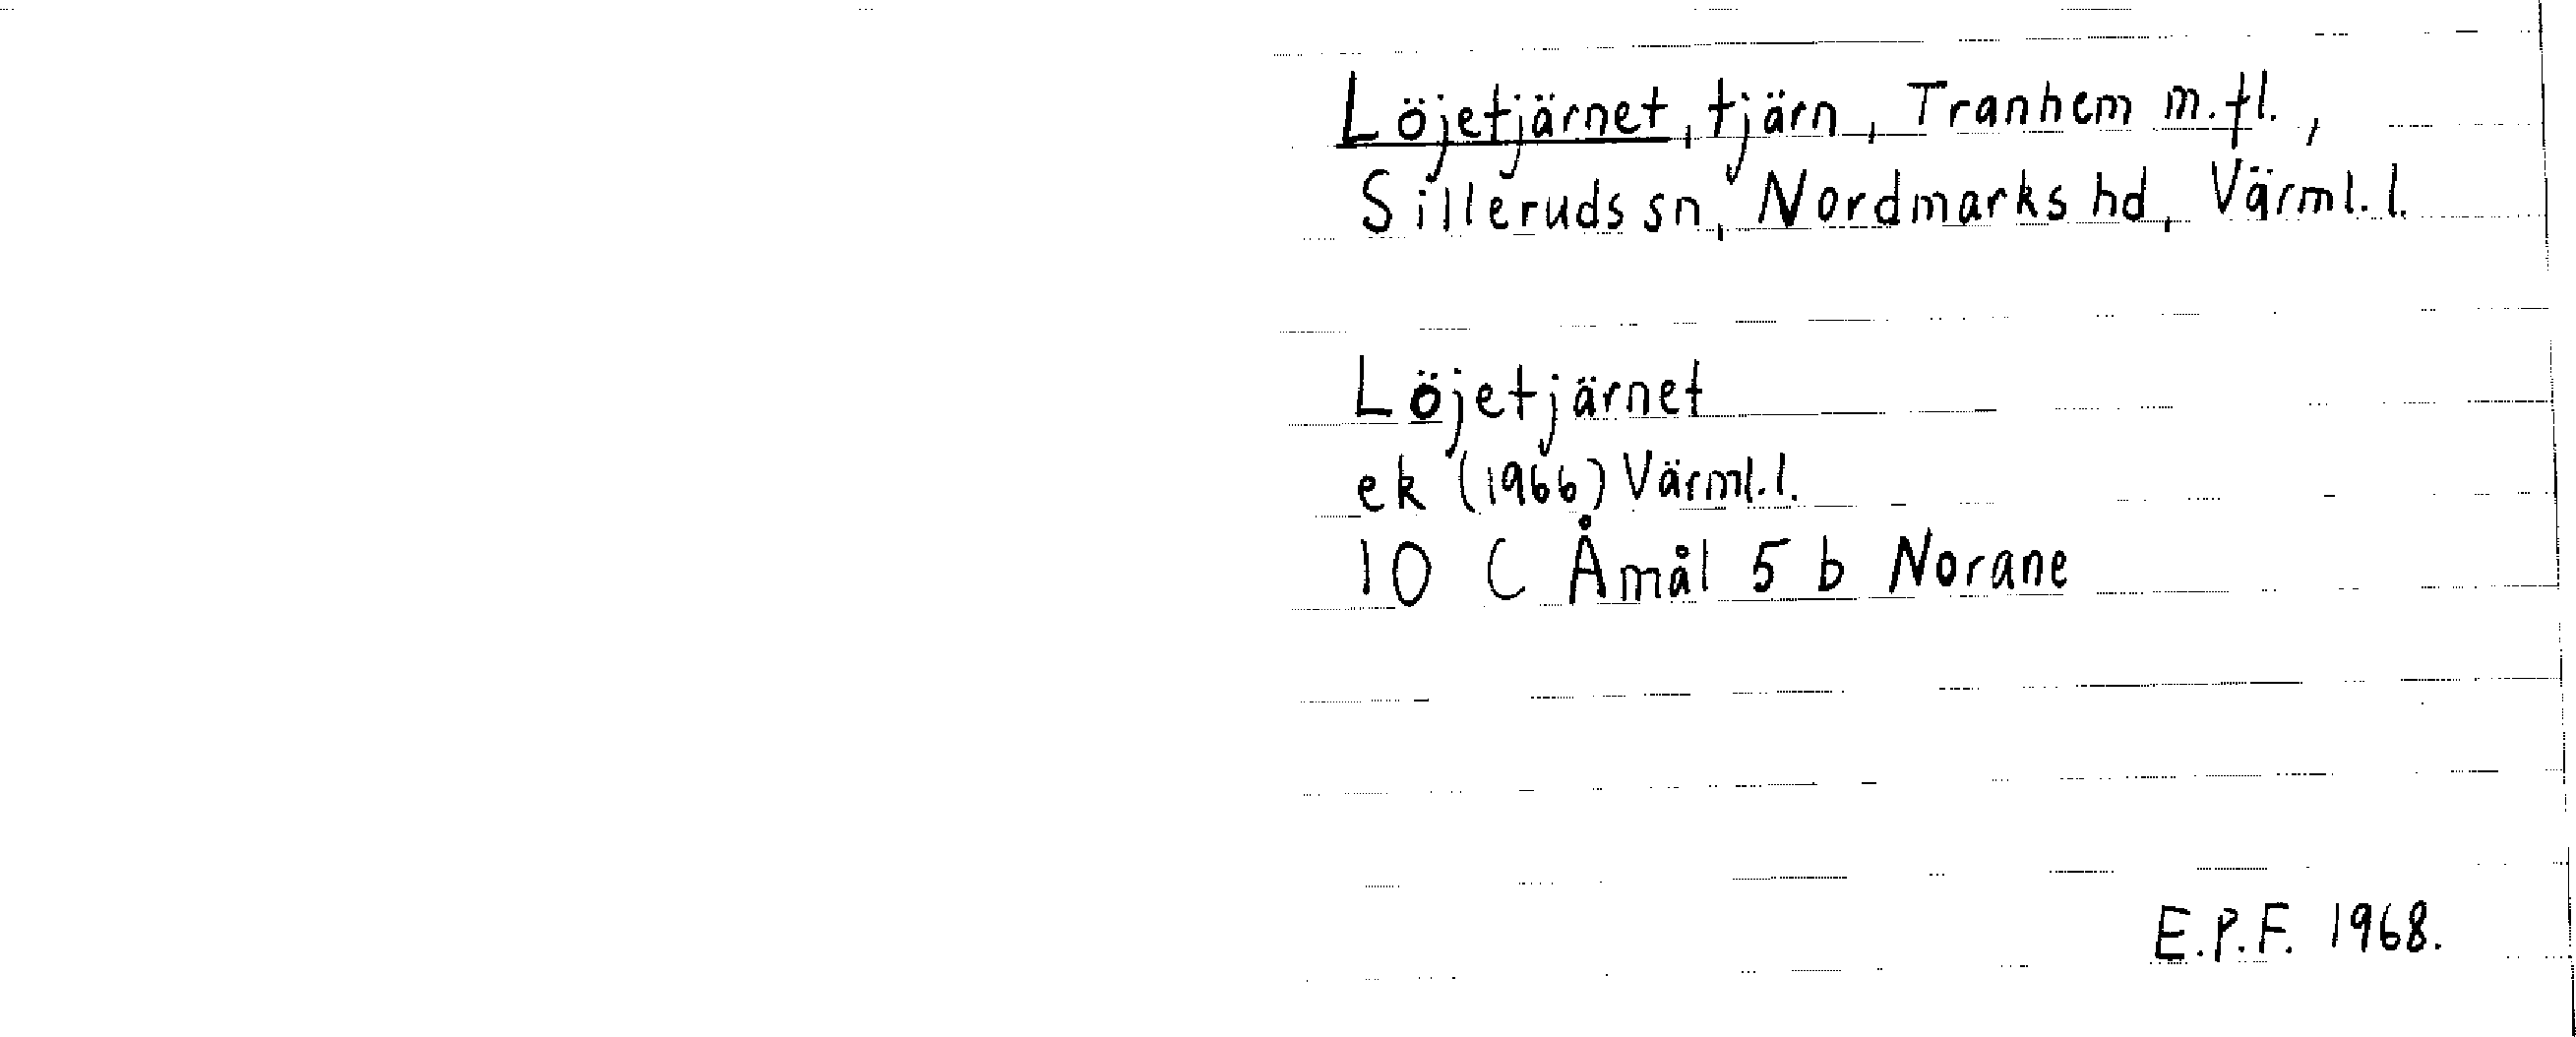 Löjetjärnet, tjärn, Tranhem m.fl.,
Silleruds sn, Nordmarks hd, Värml. l.
Löjetjärnet
ek (1966) Värml. l.
10 C Åmål 5 b Norane
E.P.F. 1968.